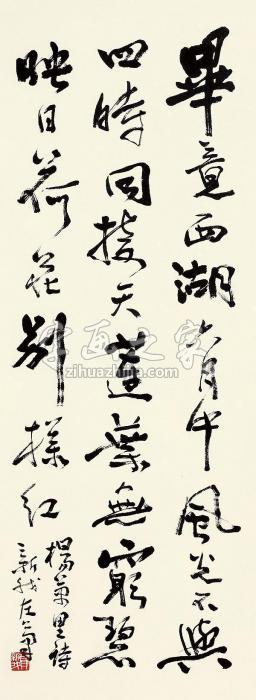 畢竟西湖六月中風光不與
四時同接天蓮葉無窮碧
映日荷花別樣紅
楊萬里詩
字画之家